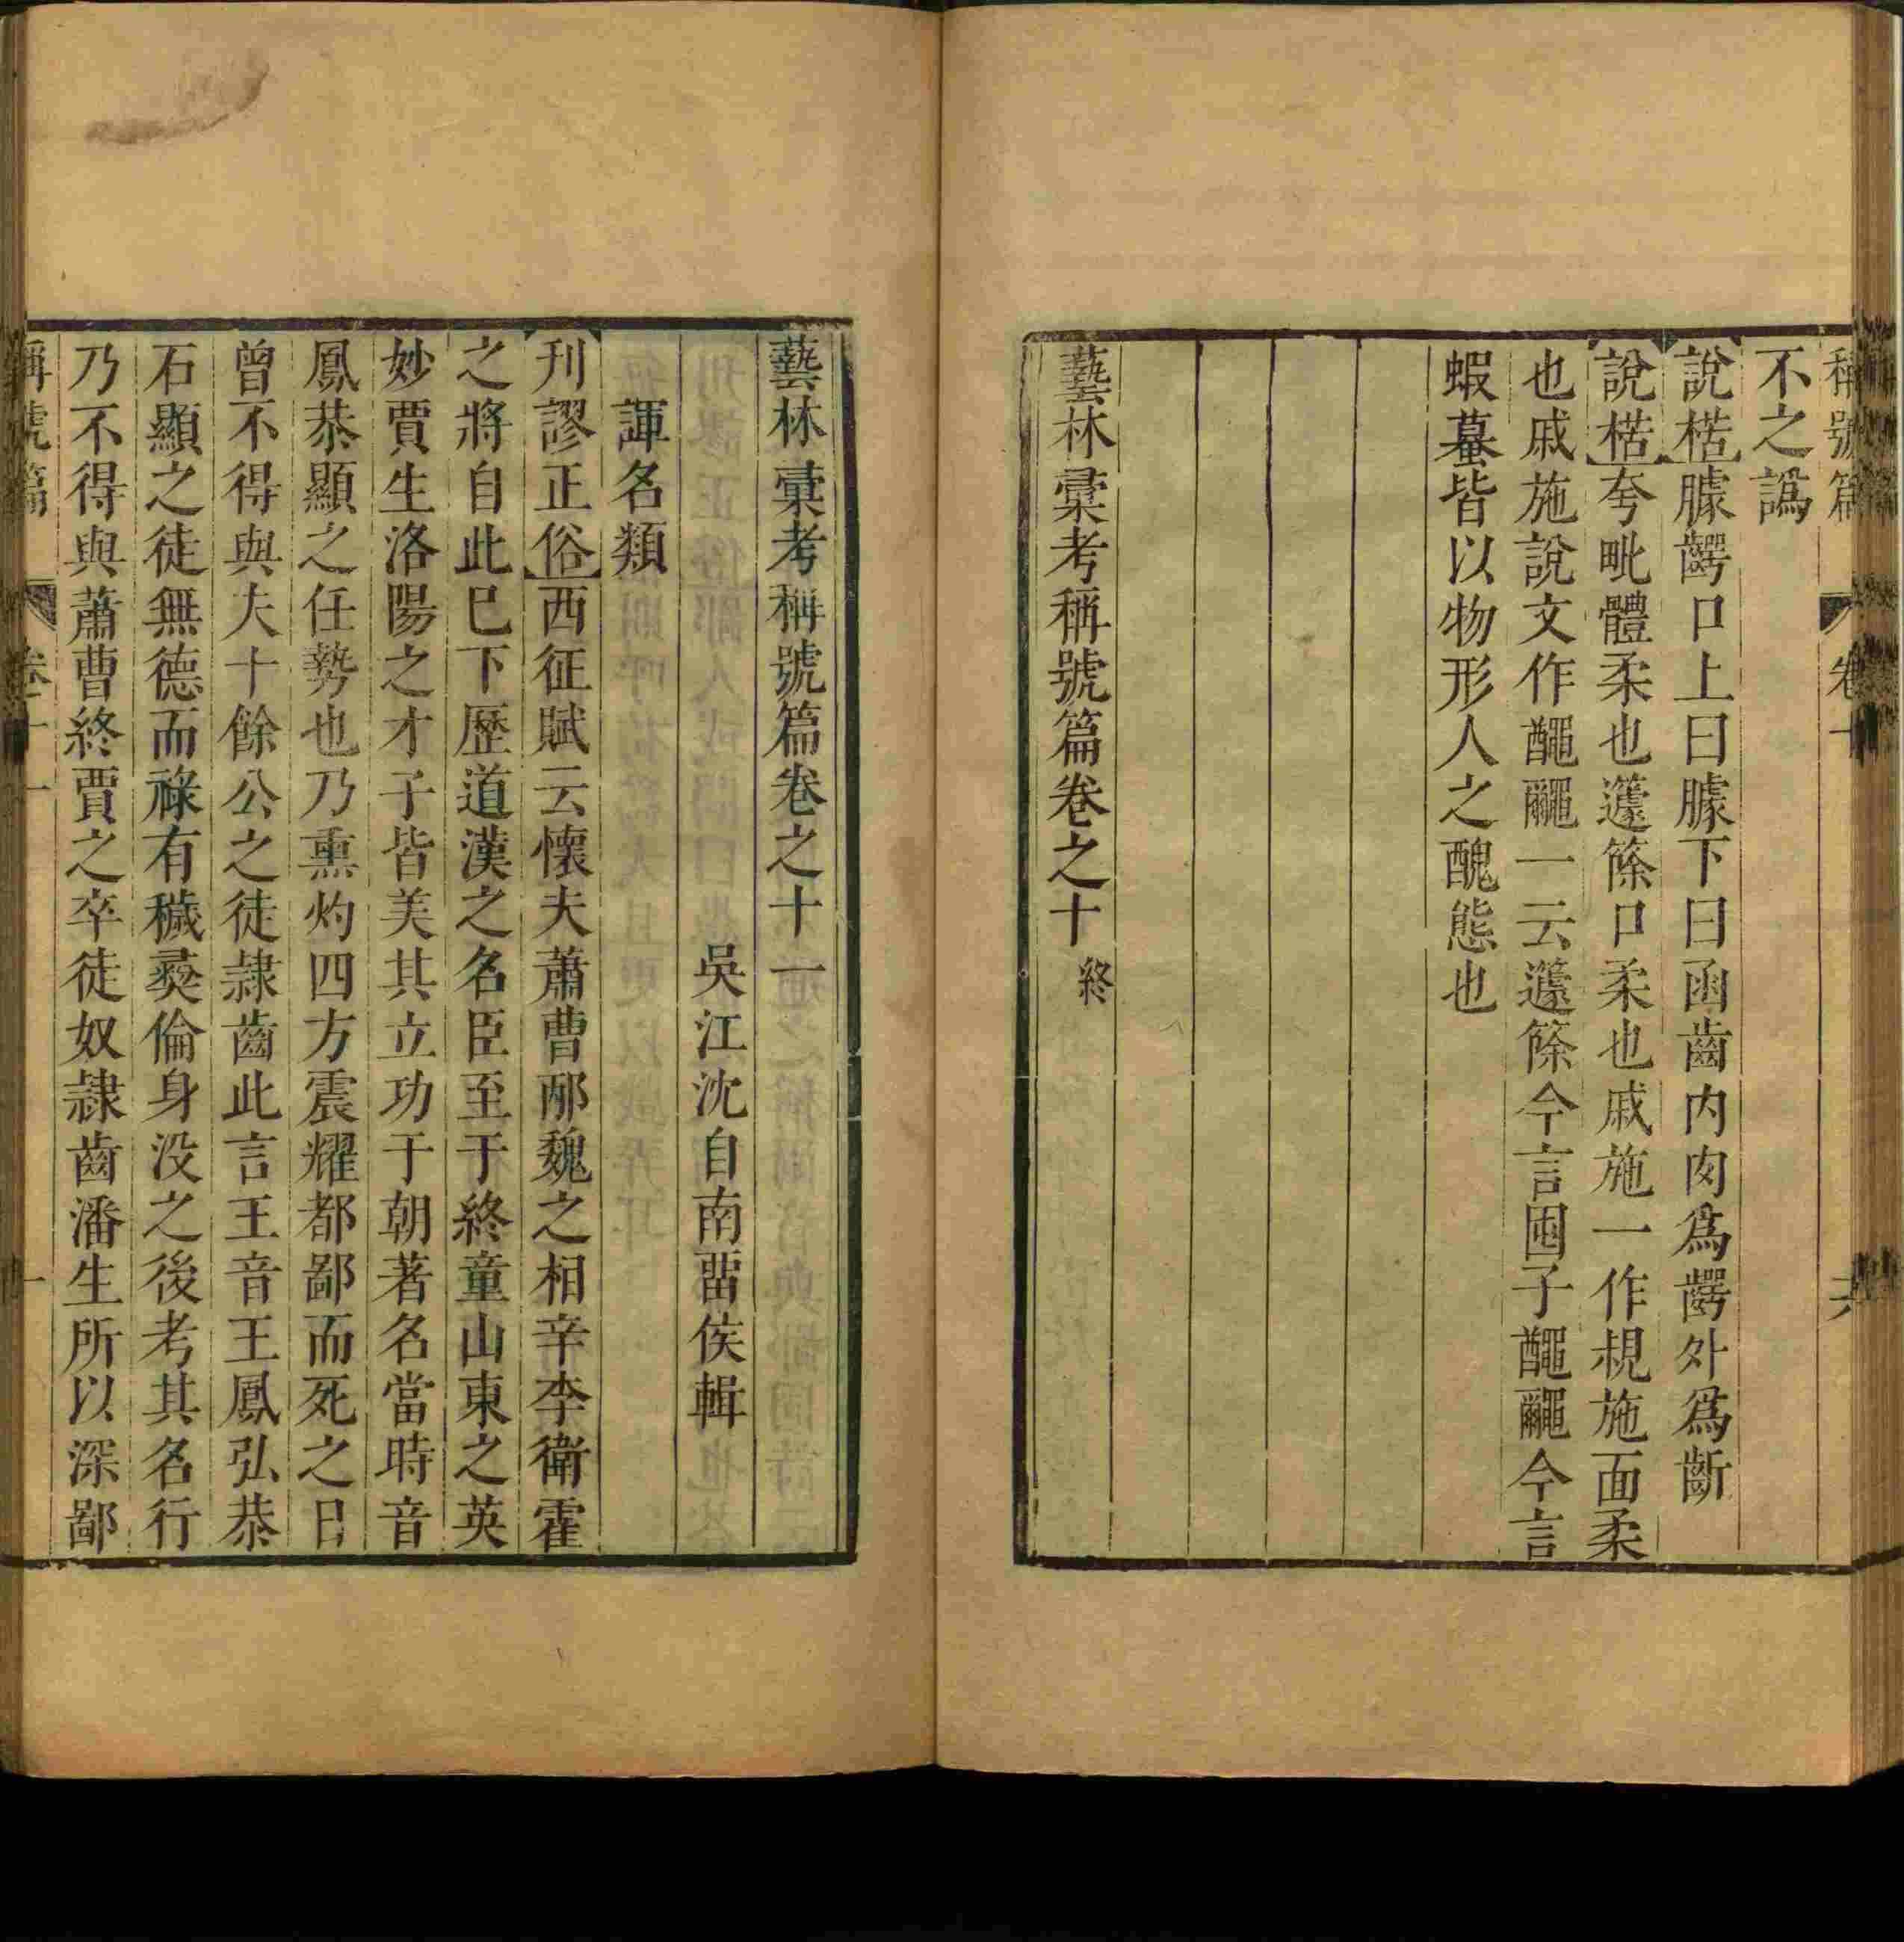 稱號篇 卷十 六
不之譌
說楛臄齶口上曰臄下曰函齒内肉爲齶外爲齗
說楛夸毗體柔也蘧篨口柔也戚施一作規施面柔
也戚施說文作𪓰𪓿一云蘧篨今言囤子𪓰𪓿今言
蝦蟇皆以物形人之醜態也
藝林彙考稱號篇卷之十 終
藝林彙考稱號篇卷之十一
吳江沈自南畱侯輯
諢名類
刋謬正俗西征賦云懷夫蕭曹邴魏之相辛李衛霍
之將自此巳下歷道漢之名臣至于終童山東之英
妙賈生洛陽之才子皆美其立功于朝著名當時音
鳳恭顯之任勢也乃熏灼四方震耀都鄙而死之日
曾不得與夫十餘公之徒隷齒此言王音王鳳弘恭
石顯之徒無德而祿有穢彛倫身没之後考其名行
乃不得與蕭曹終賈之卒徒奴隷齒潘生所以深鄙
稱號篇 卷十一 一